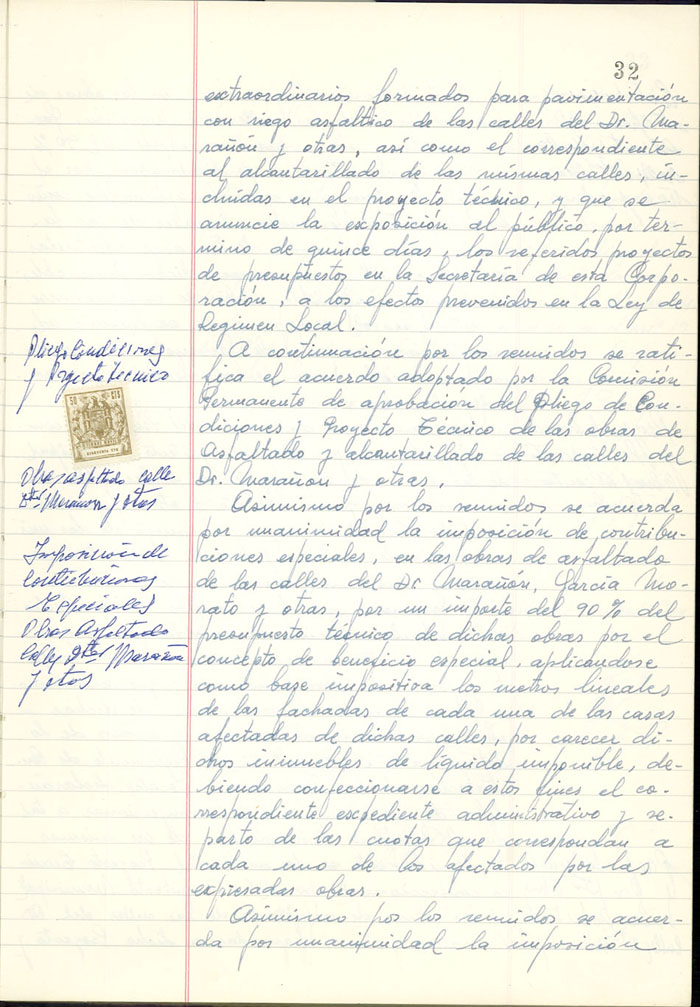 32
extraordinarios formados para pavimentación
con riego asfáltico de las calles del Dr. Ma-
rañón y otras, así como el correspondiente
al alcantarillado de las mismas calles, in-
cluidas en el proyecto técnico, y que se
anuncie la exposición al público, por tér-
mino de quince días, los referidos proyectos
de presupuestos en la Secretaría de esta Corpo-
ración, a los efectos prevenidos en la Ley de
Regimen Local.
Pliego Condiciones
y Proyecto Tecnico
A continuación por los reunidos se rati-
fica el acuerdo adoptado por la Comisión
Permanente de aprobación del Pliego de Con-
diciones y Proyecto Técnico de las obras de
Asfaltado y alcantarillado de las calles del
Dr. Marañón y otras.
50 CTS
Obras asfaltado calle
Marañon y otras
Asimismo por los reunidos se acuerda
por unanimidad la imposición de contribu-
ciones especiales, en las obras de asfaltado
de las calles del Dr. Marañón, García Mo-
rato y otras, por un importe del 90% del
presupuesto técnico de dichas obras por el
concepto de beneficio especial, aplicandose
como base impositiva los metros lineales
de las fachadas de cada una de las casas
afectadas de dichas calles, por carecer di-
chos inmuebles de líquido imponible, de-
biendo confeccionarse a estos fines el co-
rrespondiente expediente administrativo y re-
parto de las cuotas que correspondan a
cada uno de los afectados por las
expresadas obras.
Imposición de
Contribuciones
Especiales
Obras Asfaltado
Calles Marañón
y otras
Asimismo por los reunidos se acuer-
da por unanimidad la imposición